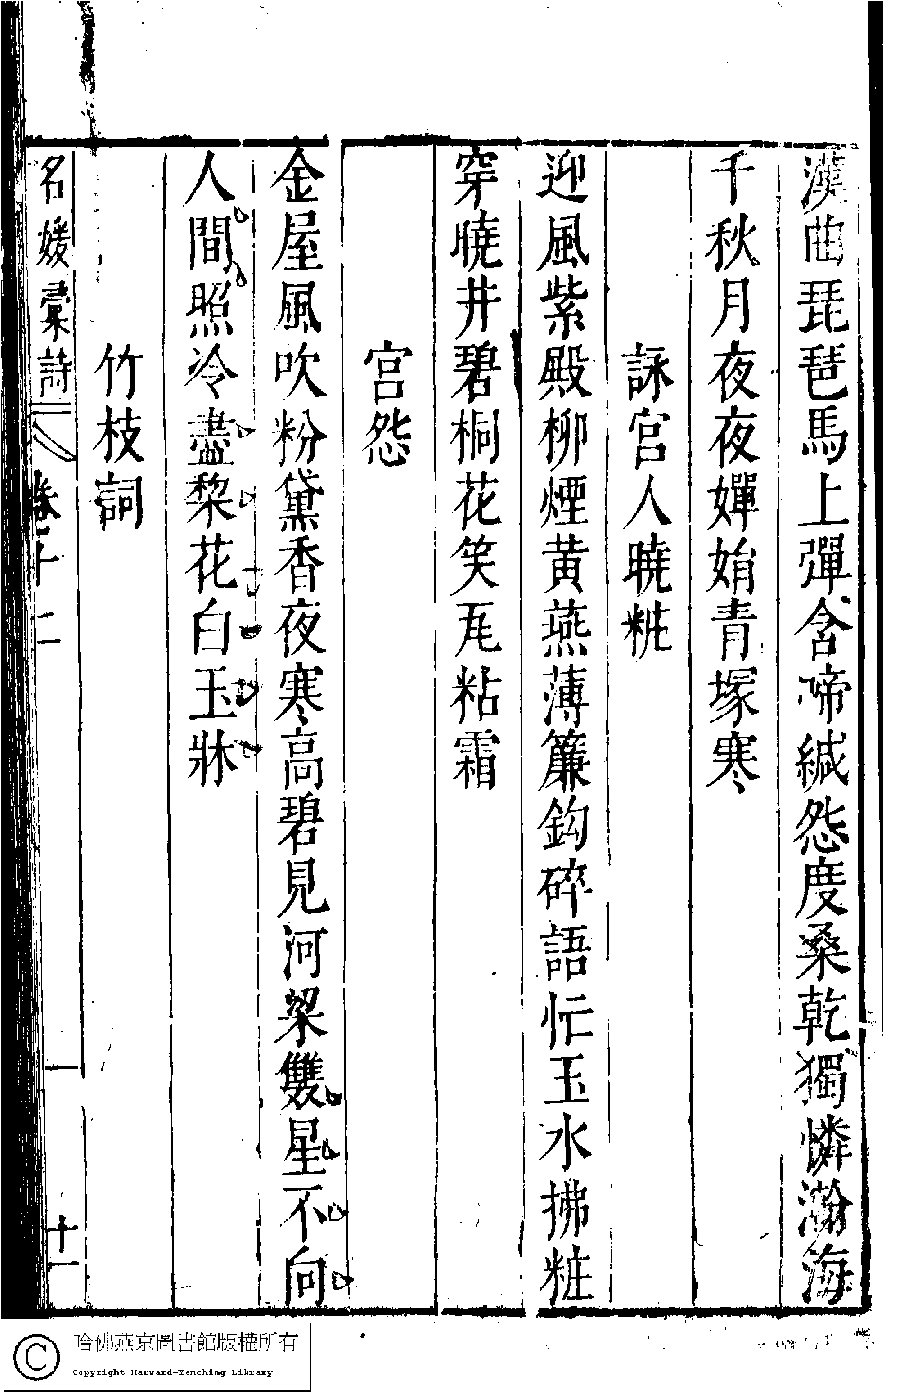 漢曲琵琶馬上彈含啼緘怨度桑乾獨憐瀚海
千秋月夜夜嬋娟青塚寒
詠宮人曉粧
迎風紫殿柳煙黄燕薄簾鈎碎語忙玉水拂粧
穿曉井碧桐花笑瓦粘霜
宫怨
金屋風吹粉黛香夜寒高碧見河梁雙星不向
人間照冷盡棃花白玉牀
竹枝詞
名媛彚詩 卷十二 十一
哈佛燕京圖書館版權所有
Copyright Harvard-Yenching Library